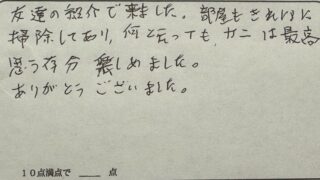 友達の紹介で来ました。部屋もきれいに
掃除してあり、何と言っても、カニは最高
思う存分 楽しめました。
ありがとうございました。
10点満点で ____ 点